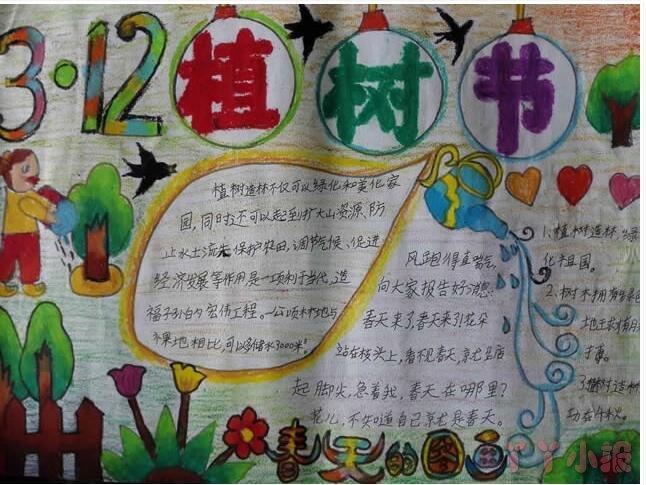 3·12 植树节
植树造林不仅可以绿化和美化家
园,同时还可以起到扩大山资源、防
止水土流失保护农田,调节气候、促进
经济发展等作用是一项利于当代,造
福子孙的宏伟工程。一公顷林地与
地相比,可以多储水3000米³
风跑得直喘气,
向大家报告好消息:
春天来了,春天来了!花朵
站在枝头上,看不见春天,就
起脚尖,急着找,春天在哪里?
花儿,不知道自己就是春天。
1、植树造林
化祖国。
2、树木拥有
地球
3植树造林
功在千秋。
春天的图画
丫丫小报